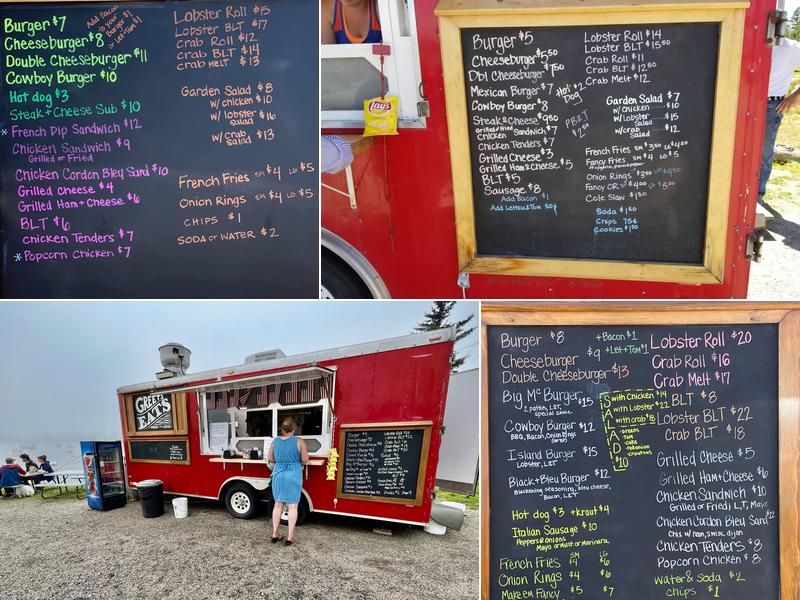 Burger $7
Cheeseburger $8
Double Cheeseburger $11
Cowboy Burger $10
Add Bacon
to your
Burger $1
or Let+Tom $1
Hot dog $3
Steak + Cheese Sub $10
* French Dip Sandwich $12
Chicken Sandwich $9
Grilled or Fried
Chicken Cordon Bley Sand $10
Grilled Cheese $4
Grilled Ham + Cheese $6
BLT $6
Chicken Tenders $7
* Popcorn Chicken $7
Lobster Roll $15
Lobster BLT $17
Crab Roll $12
Crab BLT $14
Crab Melt $13
Garden Salad $8
w/ chicken $10
w/ lobster salad $16
w/ crab salad $13
French Fries SM $4 LG $5
Onion Rings SM $4 LG $5
CHIPS $1
SODA or WATER $2
Burger $5
Cheeseburger $5.50
Dbl Cheeseburger $7.50
Mexican Burger $7
Cowboy Burger $8
Hot Dog $2
Steak & Cheese $9.50
Grilled/Fried Chicken Sandwich $7
Chicken Tenders $7
Grilled Cheese $3
Grilled Ham & Cheese $5
BLT $5
Sausage $8
Add Bacon $1
Add Lettuce & Tom 50¢
PB&J $2.50
Lobster Roll $14
Lobster BLT $15.50
Crab Roll $11
Crab BLT $12.50
Crab Melt $12
Garden Salad $7
w/chicken $10
w/Lobster Salad $15
w/crab Salad $12
French Fries SM $3.50 LG $4.50
Fancy Fries SM $4 LG $5
Onion Rings $3.50 LG $4.50
Fancy OR SM $4.00 LG $5.00
Cole Slaw $1.50
Soda $1.50
Chips 75¢
Cookies $1.50
Lay's
GREET'S
EATS
Burger $8
Cheeseburger $9
Double Cheeseburger $13
+Bacon $1
+Let+Tom $1
Big Mc Burger $15
2 pattie, LET,
special sauce
Cowboy Burger $12
BBQ, Bacon, Onion Rings
Island Burger $15
Lobster, LET
Black + Bleu Burger $12
Blackening seasoning, bleu cheese,
Bacon, LET
Hot dog $3 +kraut $4
Italian Sausage $10
Peppers & Onions
Mayo or Must or Marinara
SM LG
French Fries $4 $6
Onion Rings $4 $6
Make em Fancy $5 $7
SALAD
with Chicken $14
with Lobster $22
with crab $18
$10
Lobster Roll $20
Crab Roll $16
Crab Melt $17
BLT $8
Lobster BLT $22
Crab BLT $18
Grilled Cheese $5
Grilled Ham + Cheese $6
Chicken Sandwich $10
Grilled or Fried, L,T, Mayo
Chicken Cordon Bley Sand $12
Chix w/ ham, swiss, dijon
Chicken Tenders $8
Popcorn Chicken $8
Water & Soda $2
Chips $1